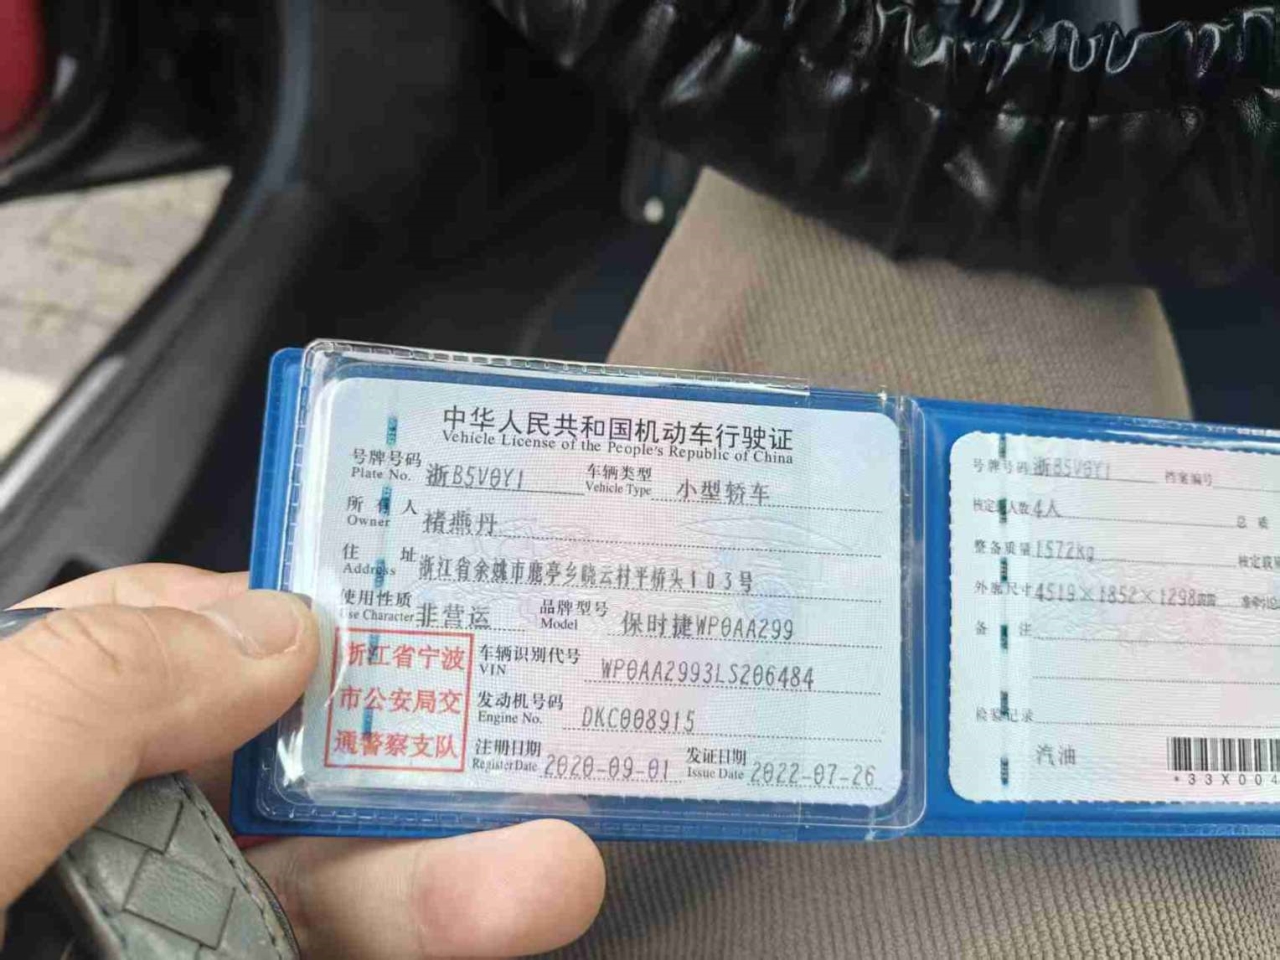 中华人民共和国机动车行驶证
Vehicle License of the People's Republic of China
号牌号码 浙B5V0Y1 车辆类型 小型轿车
Plate No. Vehicle Type
所有人 褚燕丹
Owner
住址 浙江省余姚市鹿亭乡晓云村平桥头103号
Address
使用性质 非营运 品牌型号 保时捷WP0AA299
Use Character Model
浙江省宁波
市公安局交
通警察支队
车辆识别代号 WP0AA2993LS206484
VIN
发动机号码 DKC008915
Engine No.
注册日期 2020-09-01 发证日期 2022-07-26
Register Date Issue Date
号牌号码 浙B5V0Y1 档案编号
核定载人数 4人 总质
整备质量 1572kg 核定载质
外廓尺寸 4519×1852×1298mm 准牵引
备注
检验记录
汽油
*33X004